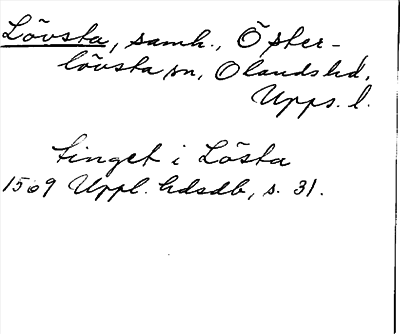 Lövsta, samh., Öster-
lövsta sn, Olands hd,
Upps. l.
tinget i Lösta
1569 Uppl. hdsdb, s. 31.